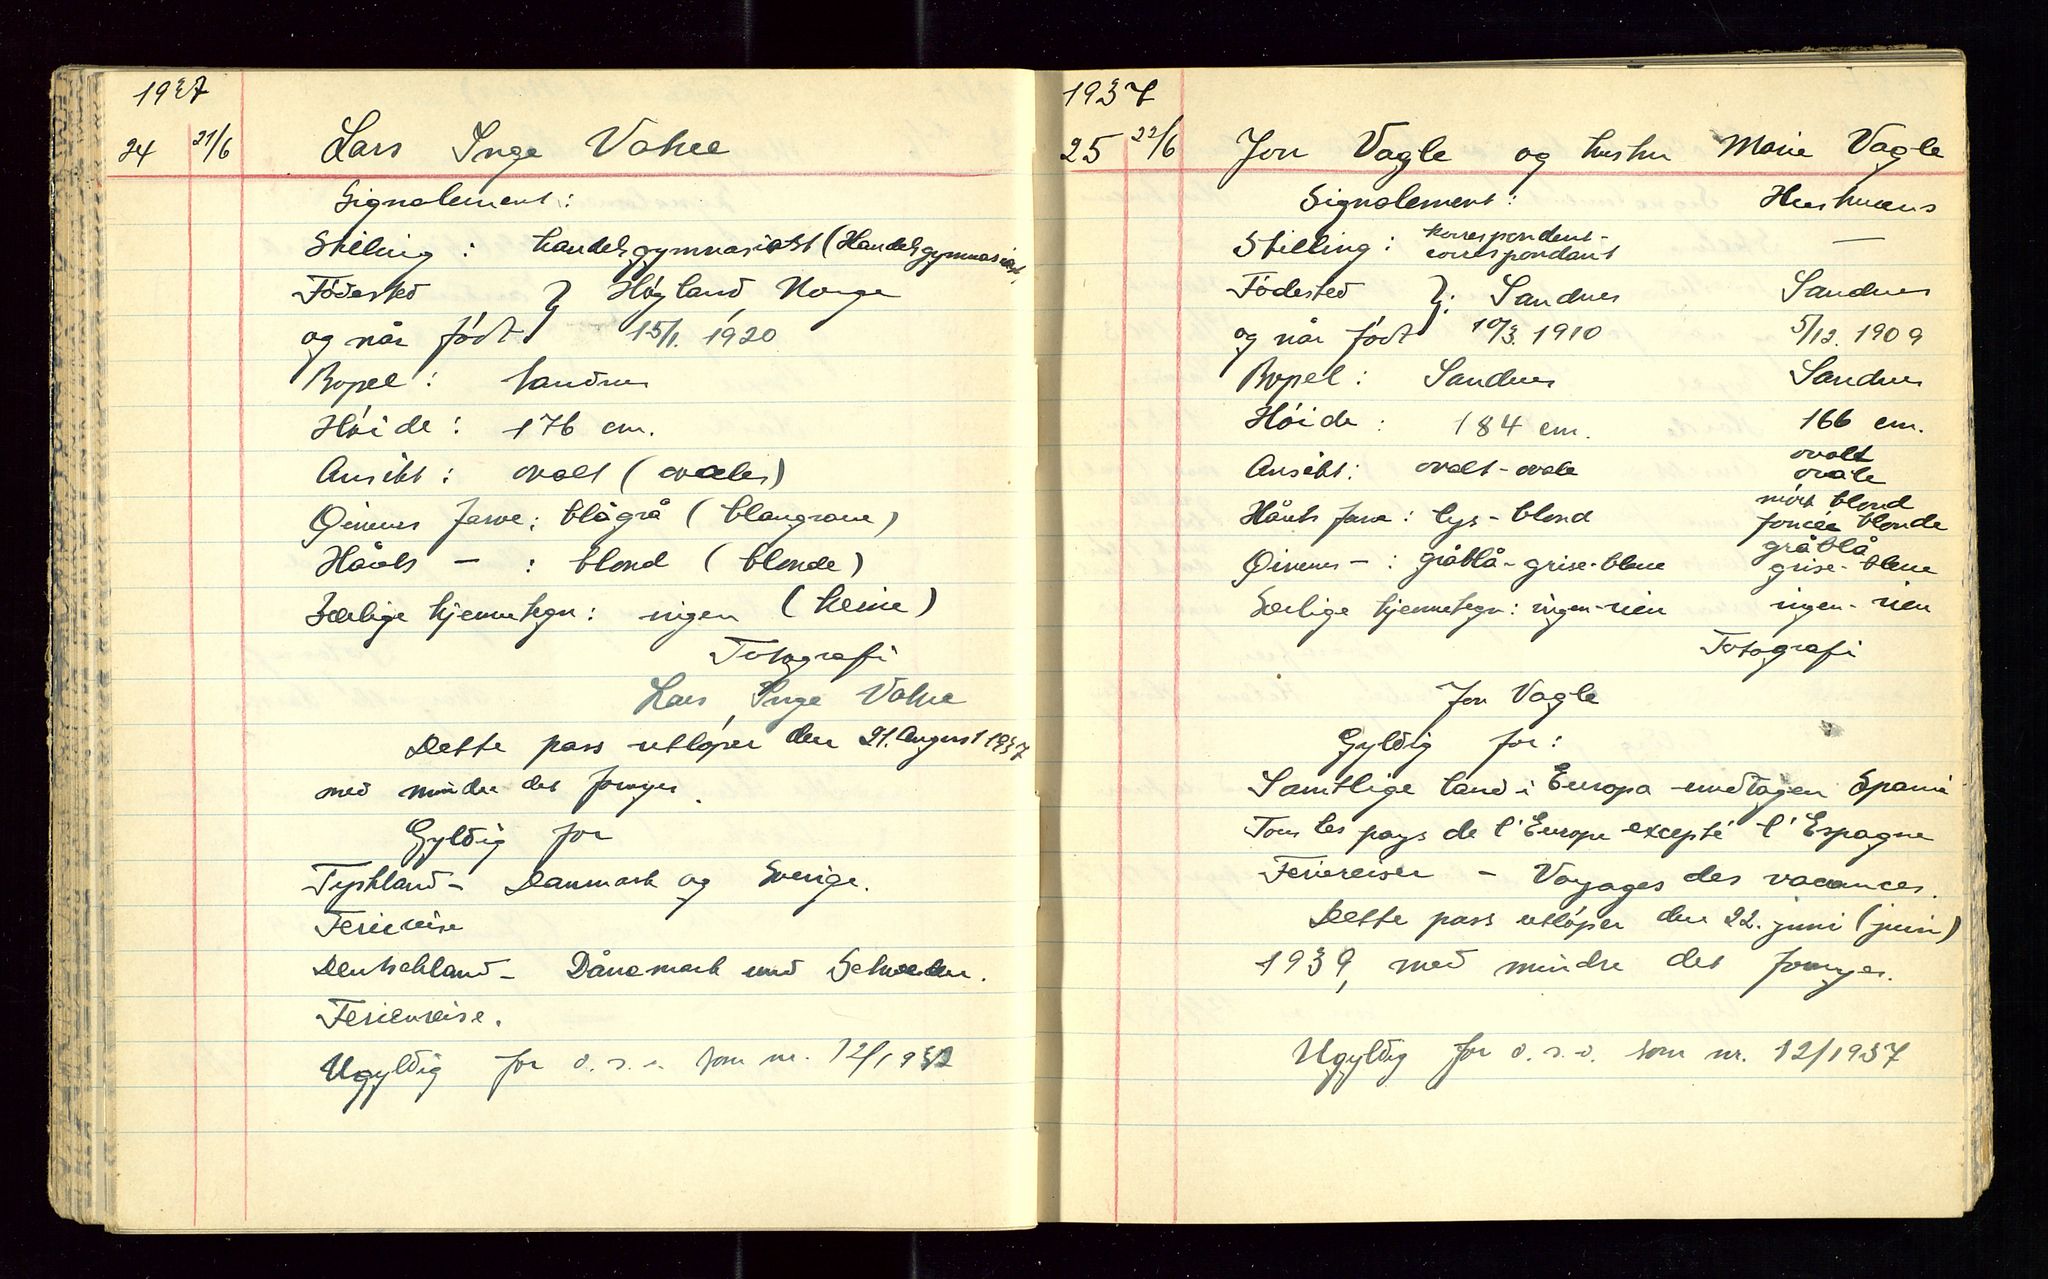 1937
24 21/6 Lars Inge
Signalement:
Stilling: handelsgymnasiast (Handelsgymnasiast)
Fødested } Høyland, Norge
og når født 15/1. 1920
Bopel: Sandnes
Høide: 176 cm.
Ansikt: ovalt (ovales)
Øinenes farve: blågrå (blaugraue)
Hårets — : blond (blonde)
Særlige kjennetegn: ingen (keine)
Fotografi
Lars Inge
Dette pass utløper den 21. August 1937
med mindre det fornyes.
Gyldig for
Tyskland - Danmark og Sverige.
Feriereise
Deutschland - Dänemark und Schweden.
Ferienreise.
Ugyldig for o.s.v. som nr. 12/1937
1937
25 22/6 Jon Vagle og hustru Marie Vagle
Signalement: Hustruens
Stilling: korrespondent- —
correspondant
Fødested }: Sandnes Sandnes
og når født 10/3. 1910 5/12. 1909
Bopel: Sandnes Sandnes
Høide: 184 cm. 166 cm.
Ansikt: ovalt - ovale ovalt ovale
Hårets farve: lys - blond mørk blond foncée blonde
Øinenes — : gråblå - grise-bleue gråblå grise-bleue
Særlige kjennetegn: ingen - rien ingen - rien
Fotografi
Jon Vagle
Gyldig for:
Samtlige land i Europa undtagen Spania
Tous les pays de l'Europe excepté l'Espagne
Feriereiser - Voyages des vacances.
Dette pass utløper den 22. juni (juin)
1939, med mindre det fornyes.
Ugyldig for o.s.v. som nr. 12/1937